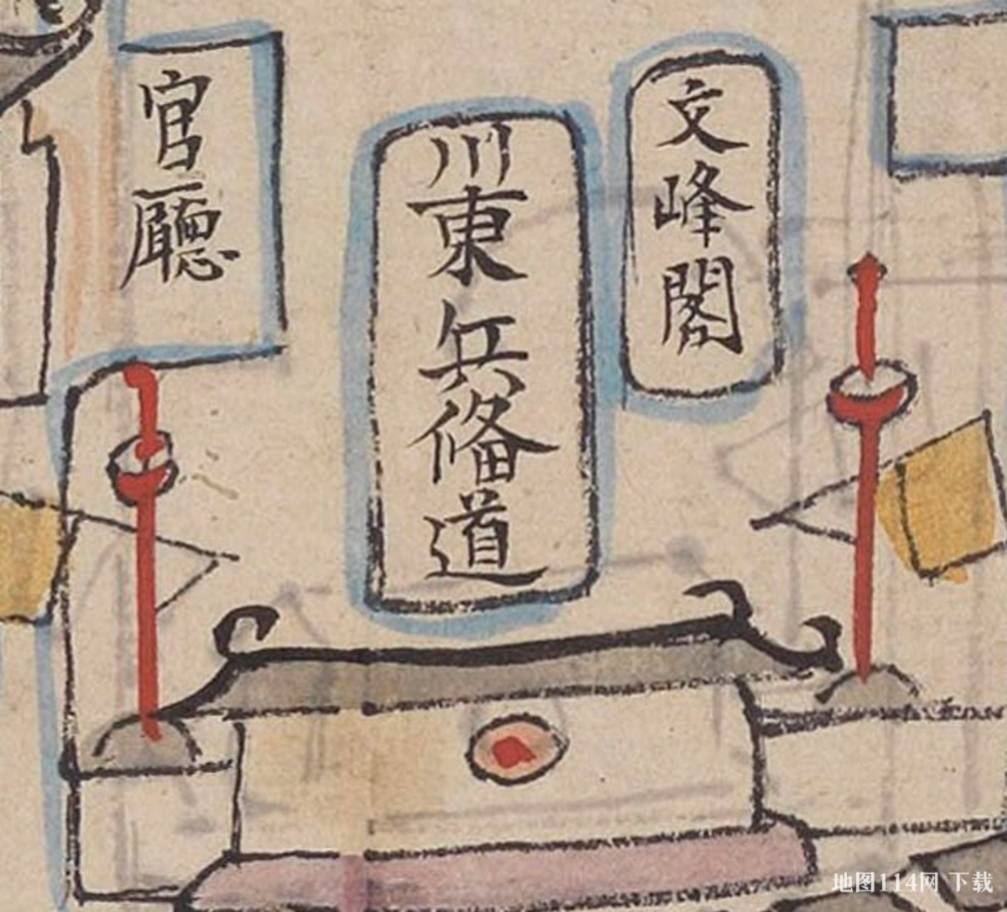 文峰閣
川東兵備道
官廳
地图114网 下载